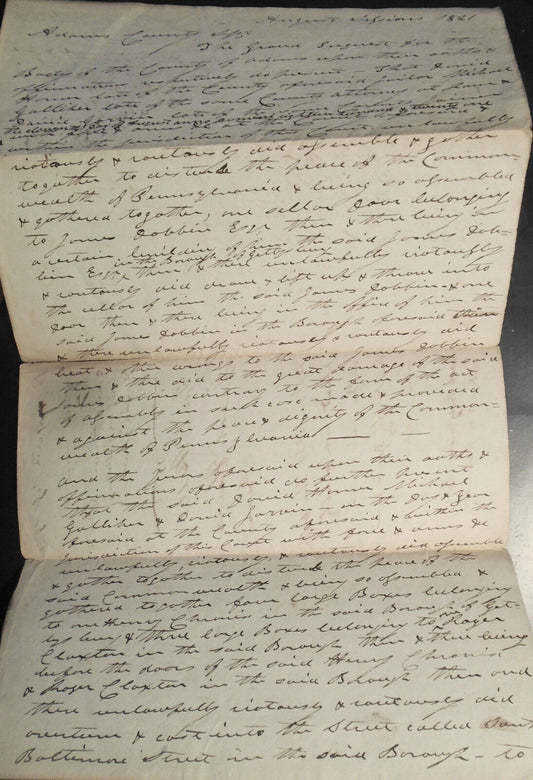 August Sessions 1821
Adams County Ss.
The Grand Inquest for the
Body of the County of Adams upon their oaths &
affirmations respectively do present that David
Horner late of the County aforesaid Michael
Galliher late of the same County
David Garvin late of
the
unlawfully
riotously & routously did assemble & gather
together to disturb the peace of the Common-
wealth of Pennsylvania & being so assembled
& gathered together, one cellar door belonging
to James Dobbin Esqr then & there being in
a certain building of him the said James Dob-
bin Esqr in the Borough of Gettysburg then & there unlawfully riotously
& routously did draw, lift up & throw into
the cellar of him the said James Dobbin & one
door then & there being in the office of him the
said James Dobbin in the Borough aforesaid then
& there unlawfully riotously & routously did
beat & other wrongs to the said James Dobbin
then & there did to the great damage of the said
James Dobbin contrary to the form of the act
of assembly in such case made & provided
& against the peace & dignity of the Common-
wealth of Pennsylvania
And the Jurors aforesaid upon their oaths &
affirmations aforesaid do further present
that the said David Horner Michael
Galliher & David Garvin on the day & year
aforesaid at the County aforesaid & within the
Jurisdiction of this Court with force & arms &c
unlawfully, riotously & routously did assemble
& gather together to disturb the peace of the
said Commonwealth & being so assembled &
gathered together four large Boxes belonging
to one Henry Chronis in the said Borough of Get-
tysburg & three large Boxes belonging to Roger
Claxton in the said Borough then & there being
before the doors of the said Henry Chronis
& Roger Claxton in the said Borough then and
there unlawfully riotously & routously did
overturn & cast into the Street called South
Baltimore Street in the said Borough - to